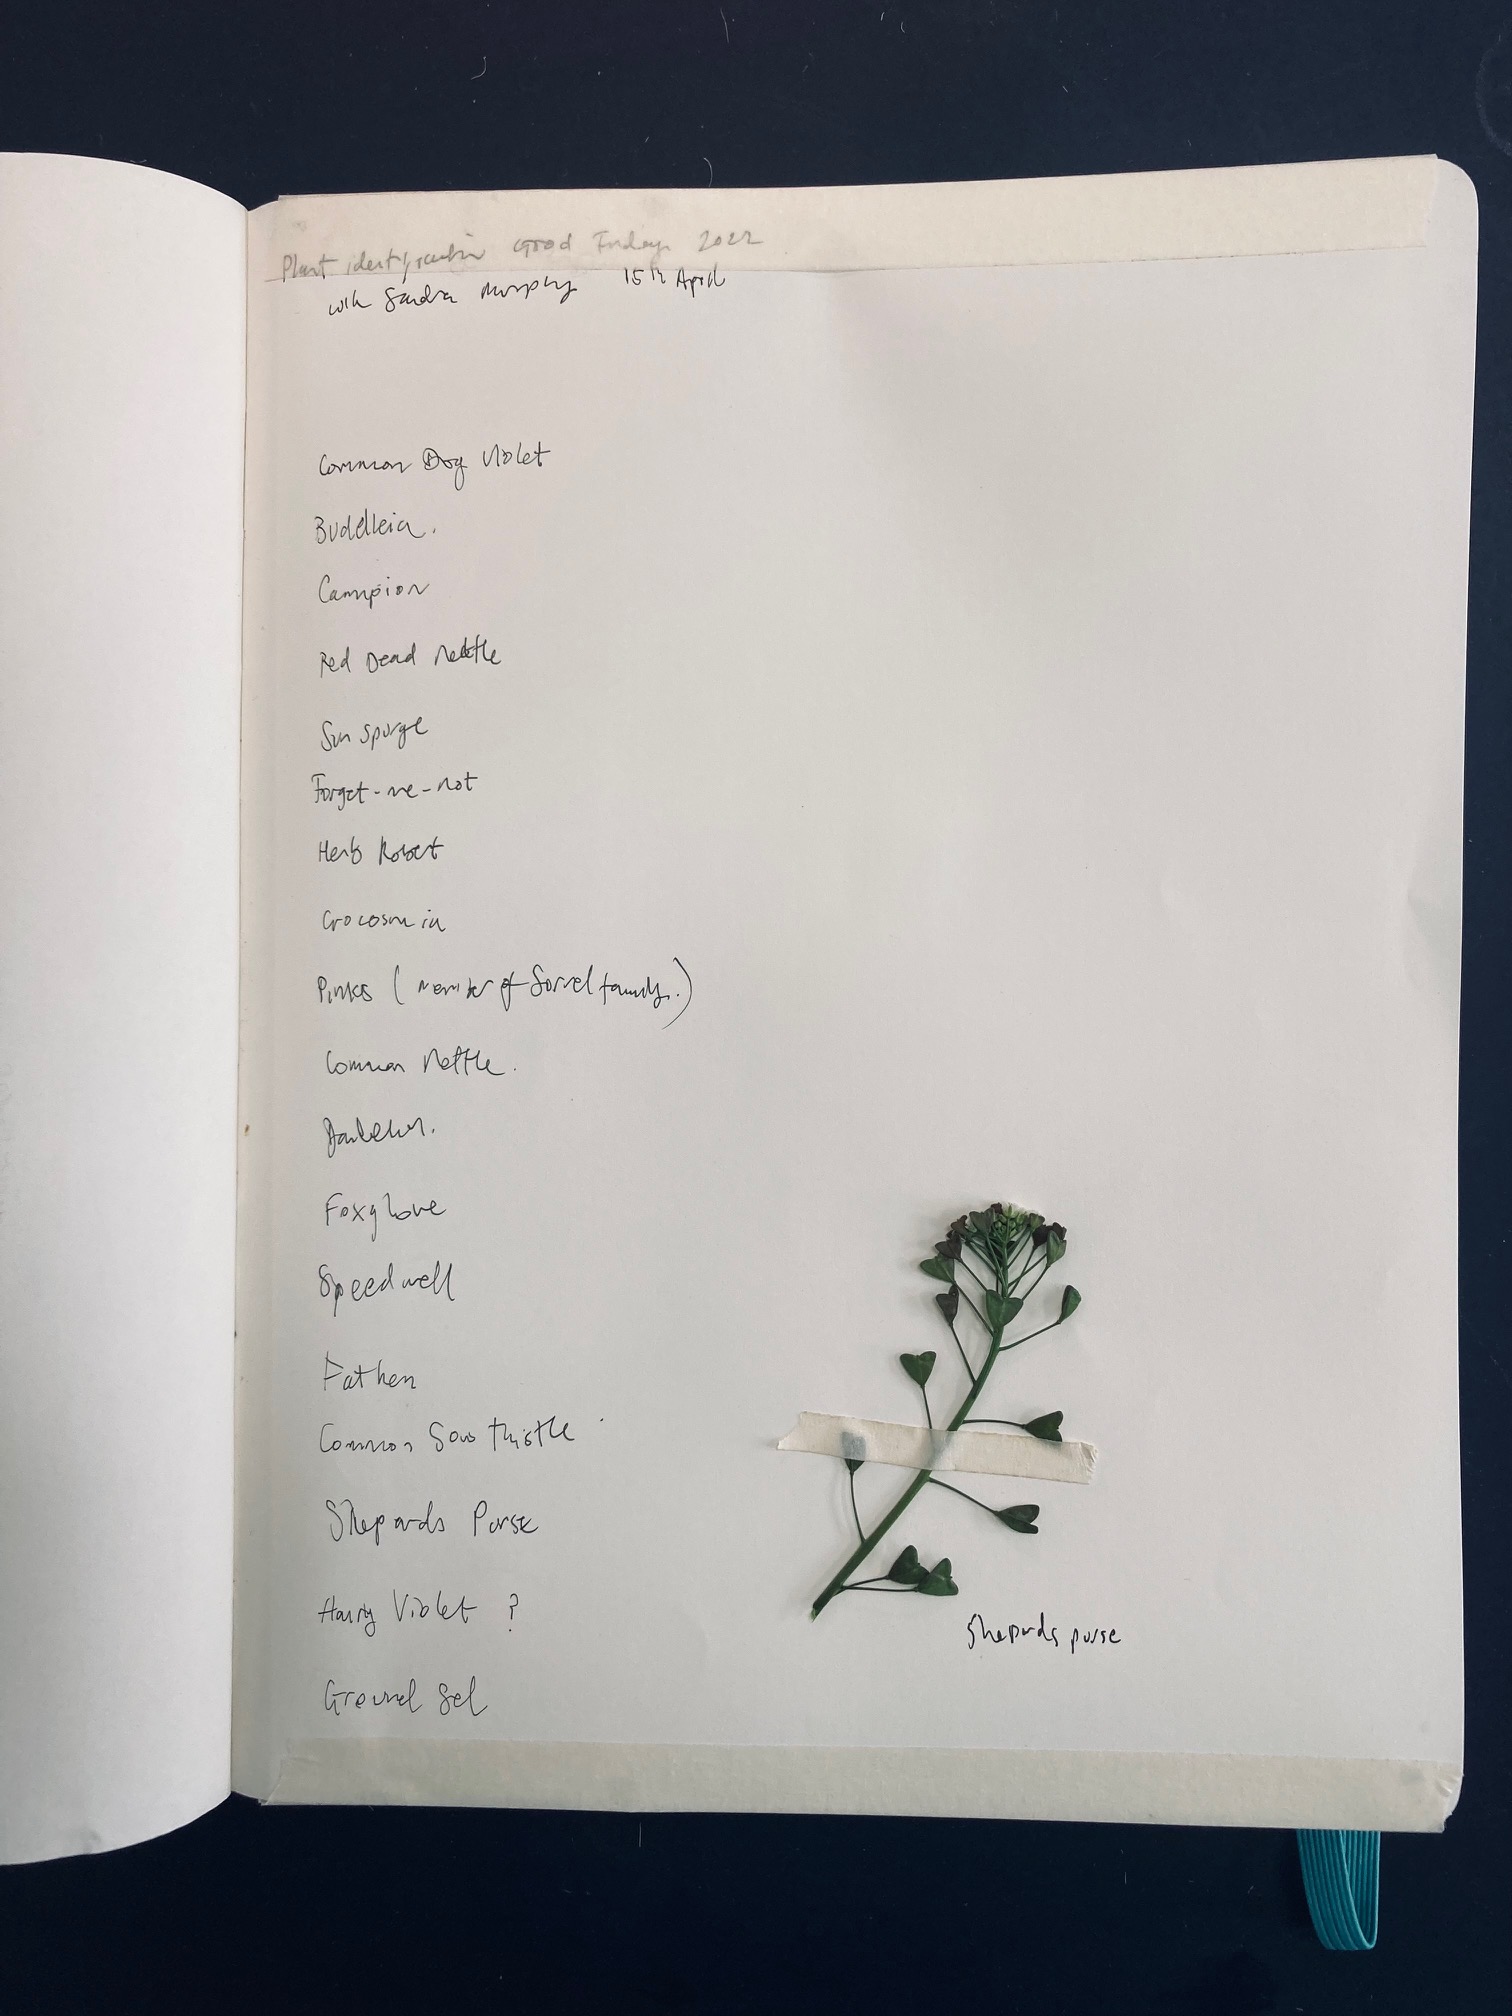 Plant identification Good Friday 2022
with Sandra Murphy 15th April
Common Dog Violet
Buddleia.
Campion
Red Dead Nettle
Sun Spurge
Forget-me-not
Herb Robert
Crocosmia
Pinks (member of Sorrel family.)
Common Nettle.
Foxglove
Speedwell
Fathen
Common Sow thistle
Shepards Purse
Hairy Violet ?
Ground Sel
Shepards purse